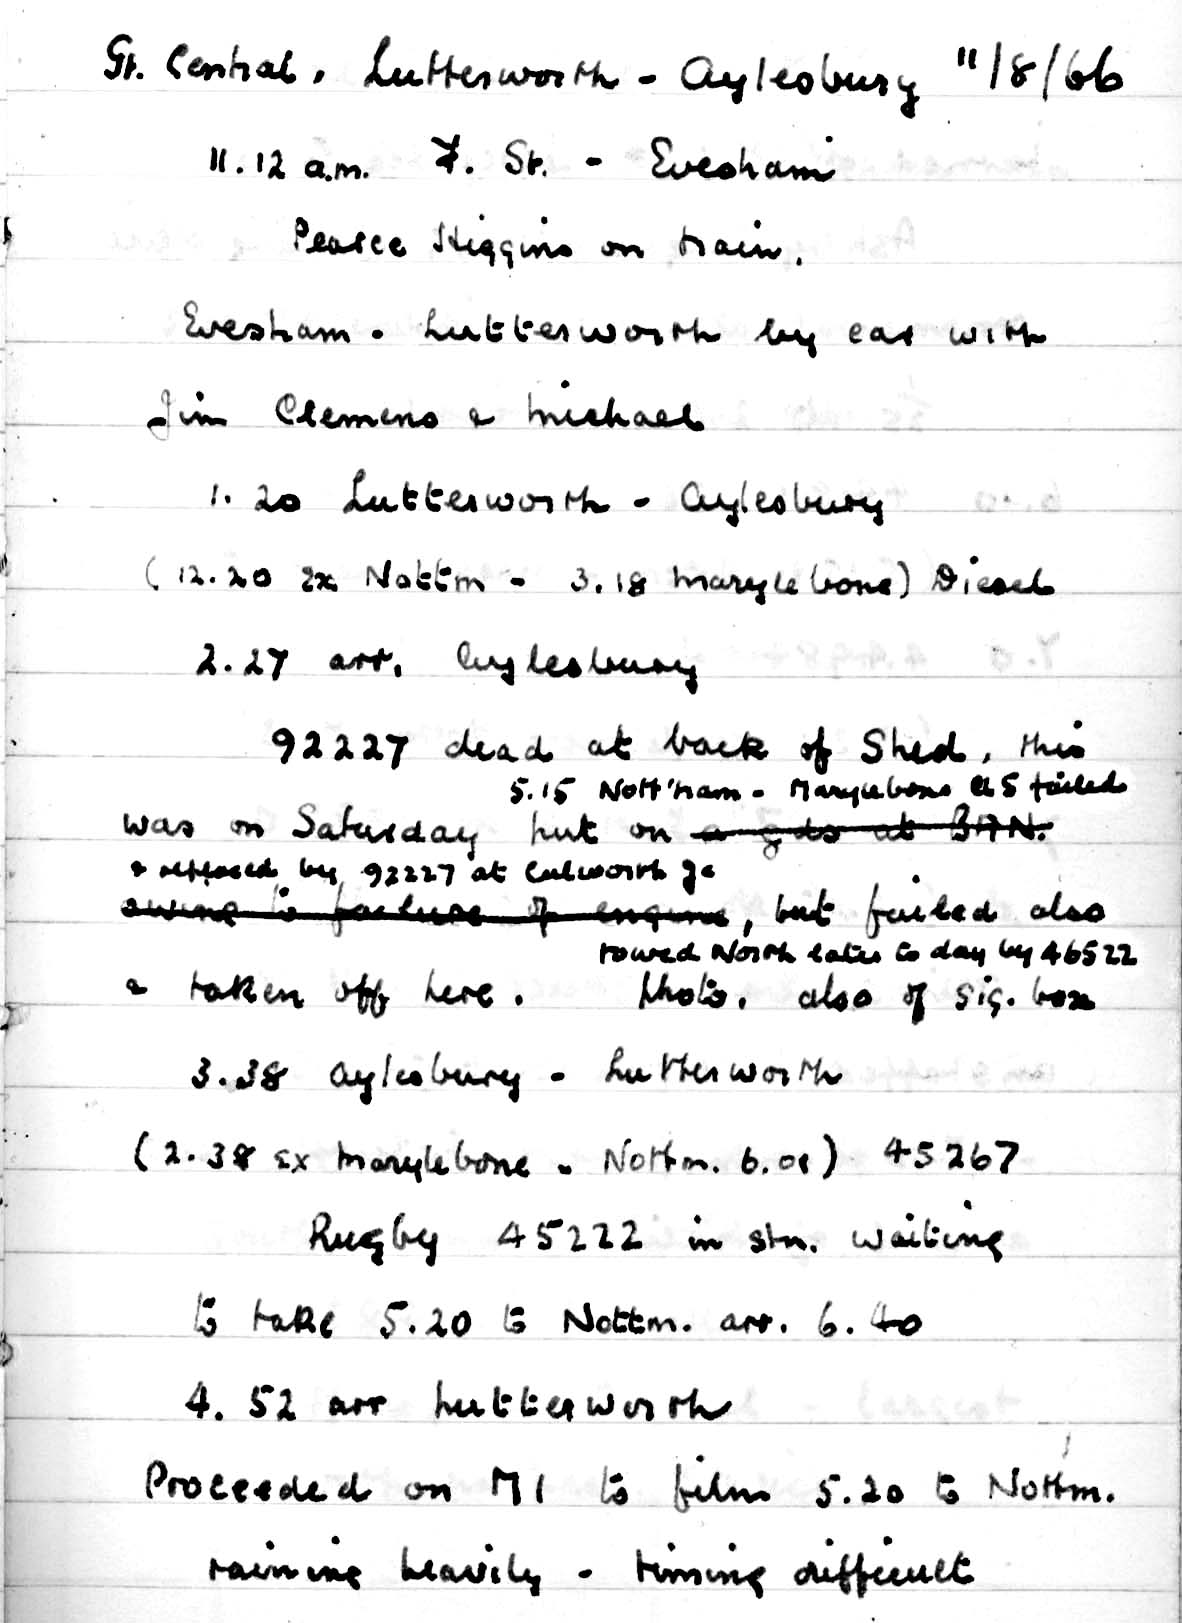 Gt. Central. Lutterworth - Aylesbury 11/8/66
11.12 a.m. F. St. - Evesham
Pearce Higgins on train.
Evesham - Lutterworth by car with
Jim Clemens & Michael
1.20 Lutterworth - Aylesbury
(12.20 ex Nottm - 3.18 Marylebone) Diesel
2.27 arr. Aylesbury
92227 dead at back of Shed, this
5.15 Nott'ham - Marylebone as failed
was on Saturday put on a gds at BAN.
& replaced by 92227 at Culworth Jc
owing to failure of engine, but failed also
towed North later to day by 46522
& taken off here. Photo. also of sig. box
3.38 Aylesbury - Lutterworth
(2.38 ex Marylebone - Nottm. 6.01) 45267
Rugby 45222 in stn. waiting
to take 5.20 to Nottm. arr. 6.40
4.52 arr Lutterworth
Proceeded on M1 to film 5.20 to Nottm.
raining heavily - timing difficult